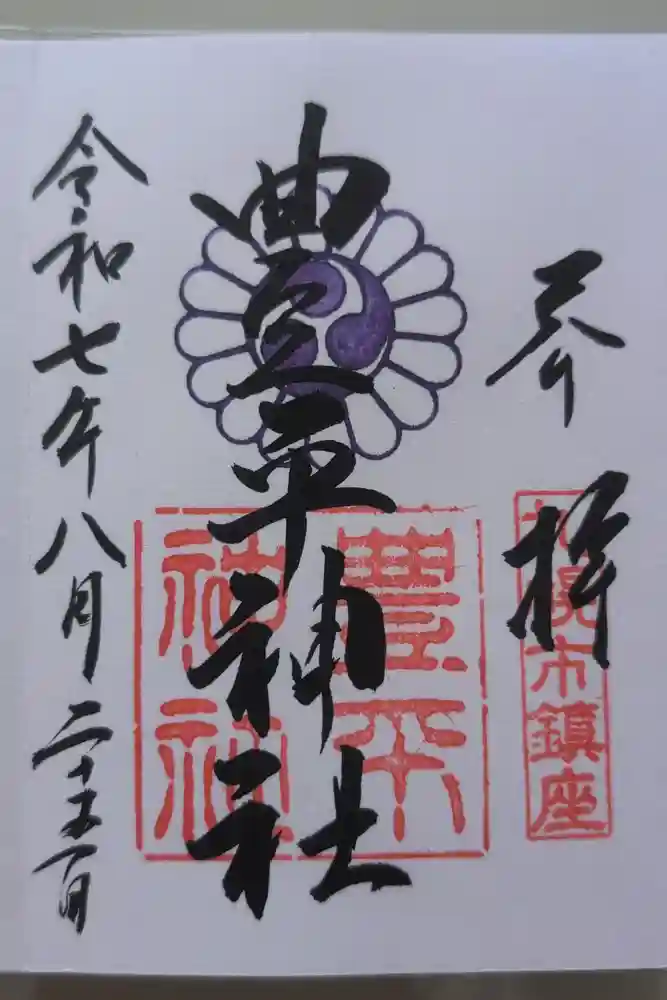 奉拝
札幌市鎮座
豊平神社
豊平
神社
令和七年八月二十五日